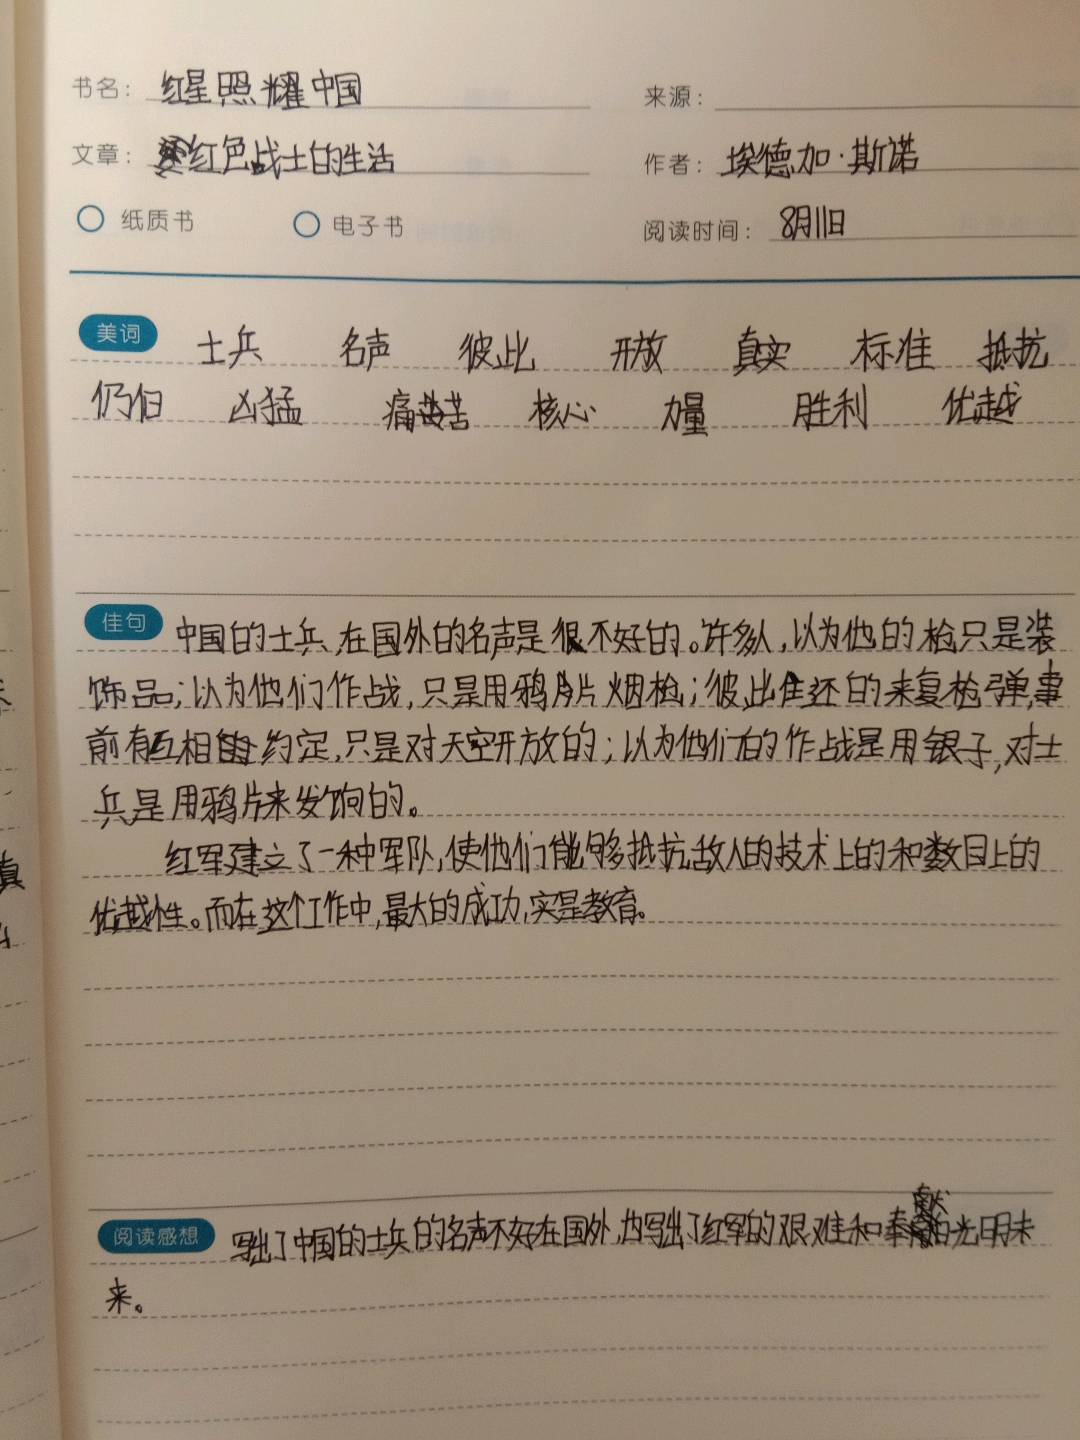 书名：红星照耀中国 来源：
文章：红色战士的生活 作者：埃德加·斯诺
纸质书 电子书 阅读时间：8月11日
美词 士兵 名声 彼此 开放 真实 标准 抵抗
仍旧 凶猛 痛苦 核心 力量 胜利 优越
佳句 中国的士兵，在国外的名声是很不好的。许多人，以为他的枪只是装
饰品；以为他们作战，只是用鸦片烟枪；彼此往还的来复枪弹，事
前有互相的约定，只是对天空开放的；以为他们的作战是用银子，对士
兵是用鸦片来发饷的。
红军建立了一种军队，使他们能够抵抗敌人的技术上的和数目上的
优越性。而在这个工作中，最大的成功，实是教育。
阅读感想 写出了中国的士兵的名声不好在国外，也写出了红军的艰难和奉献的光明未
来。